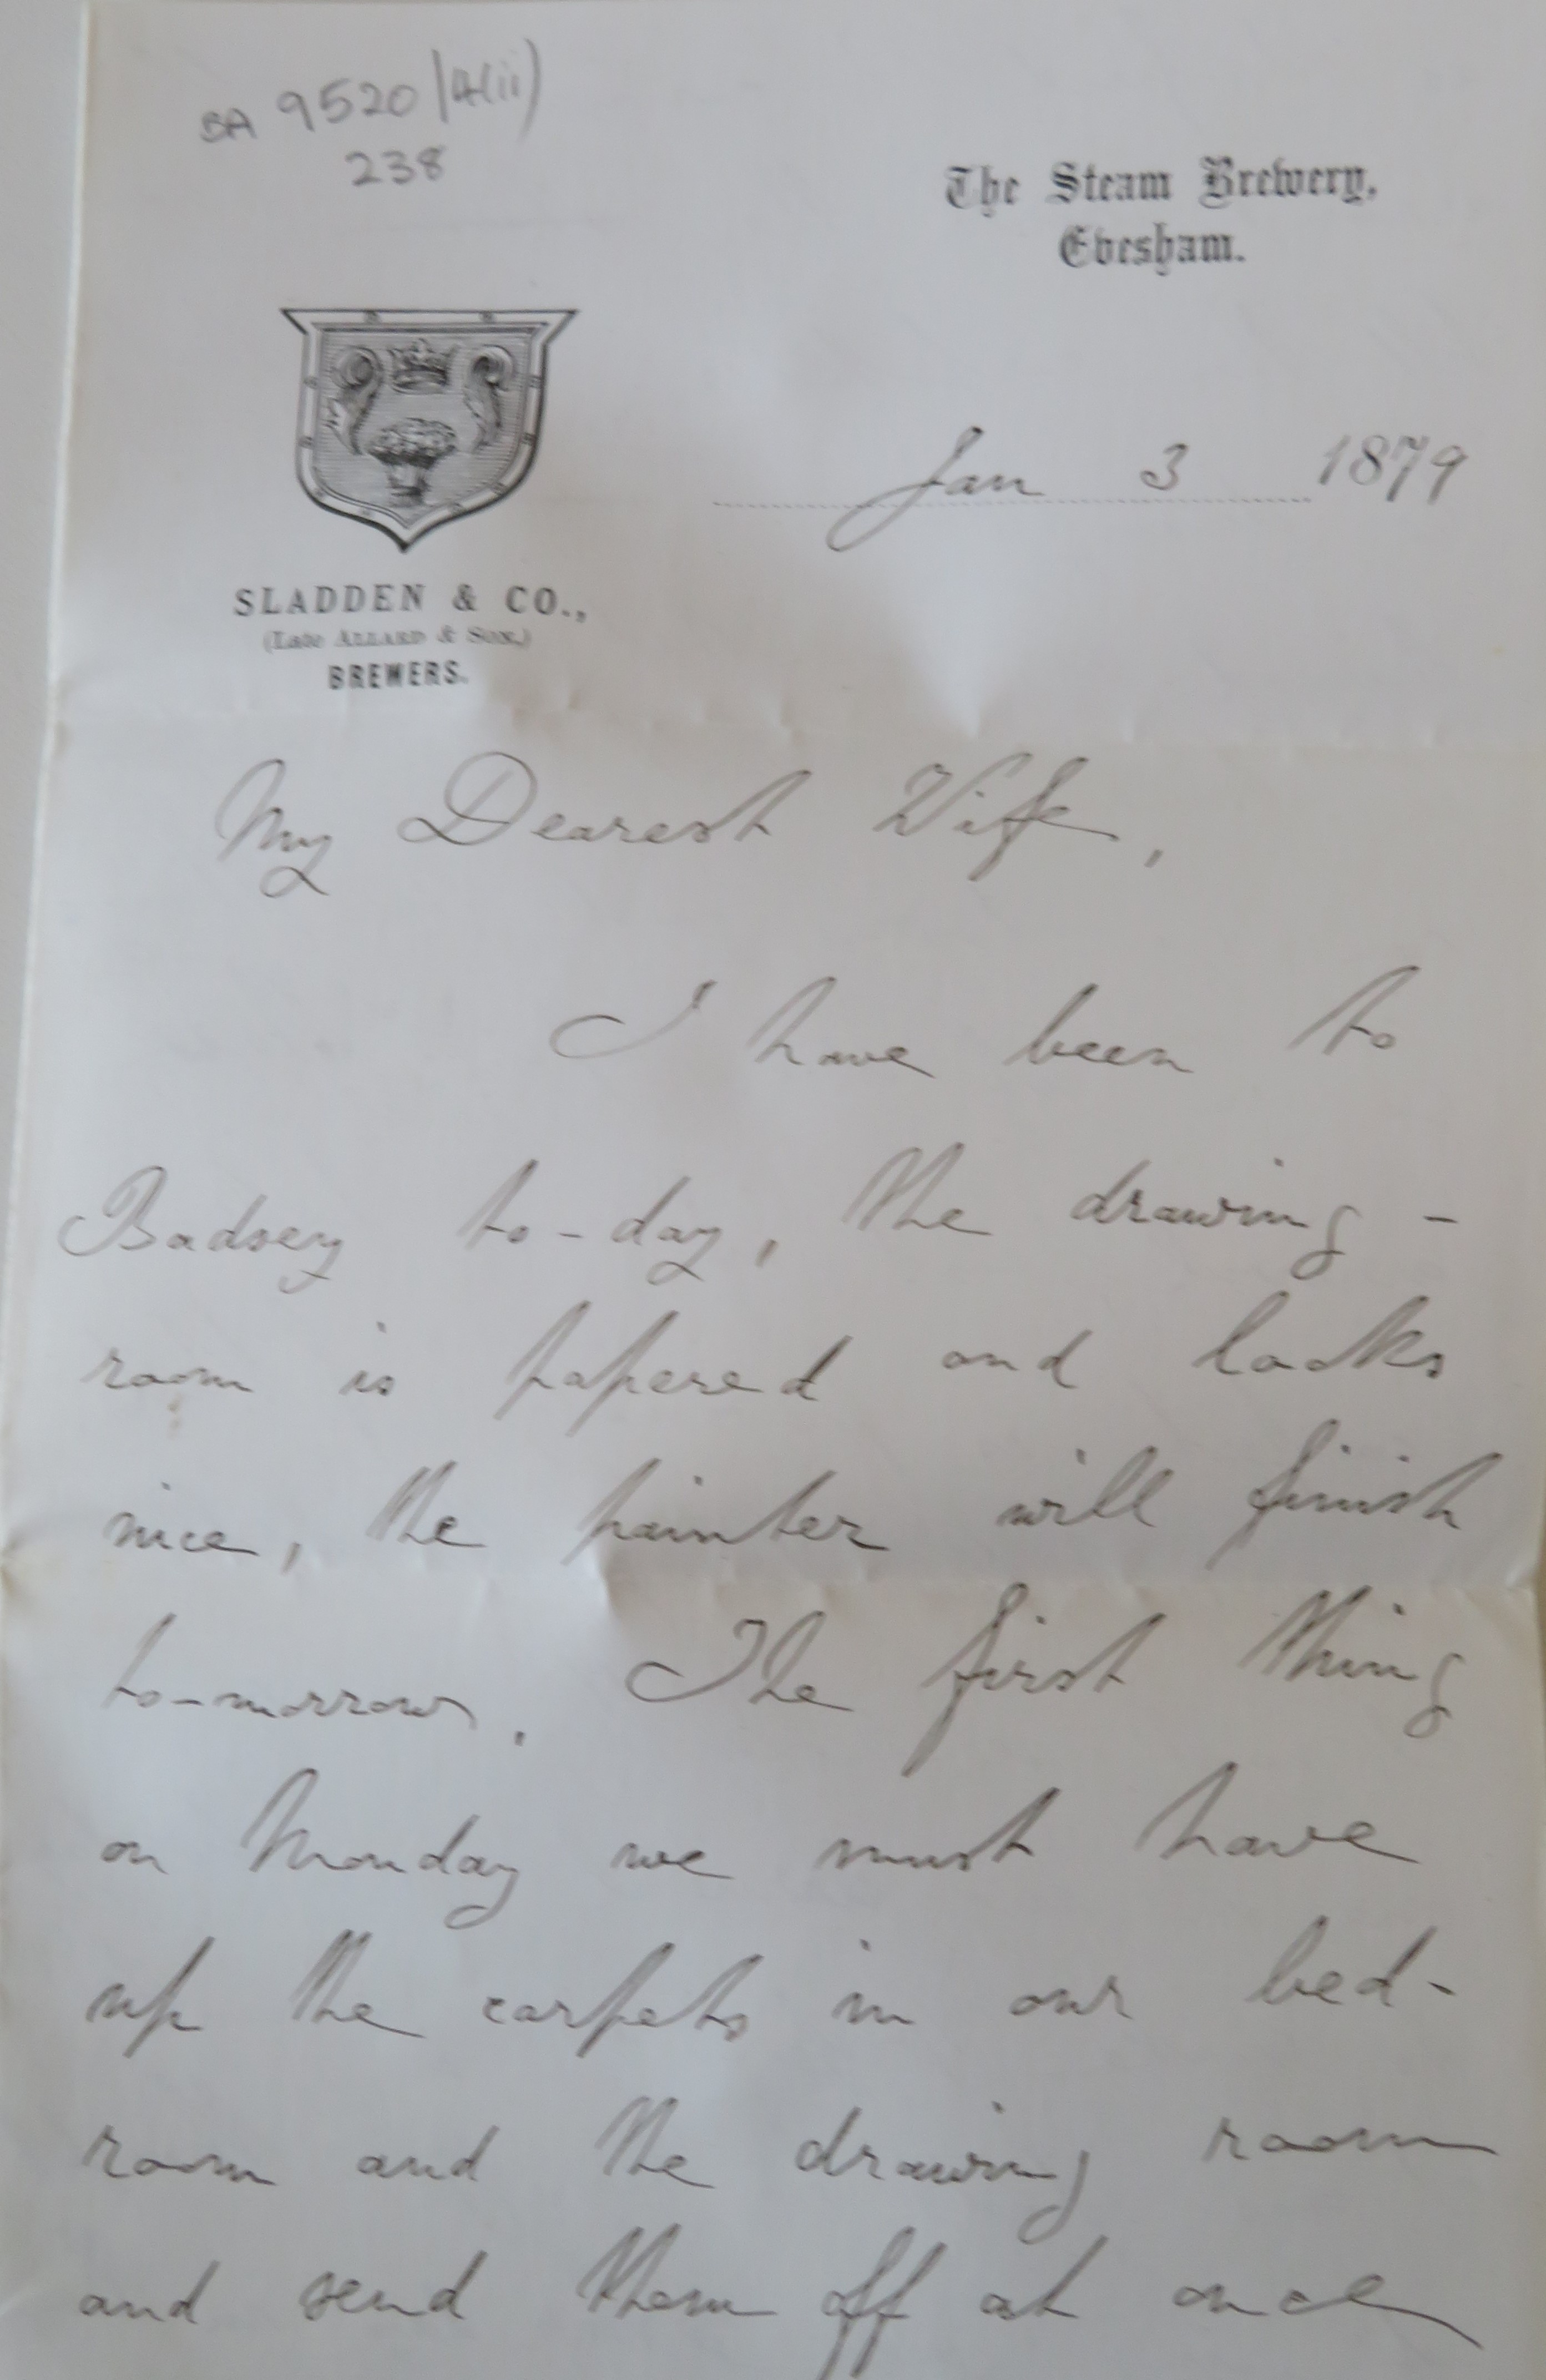 BA 9520/4(ii)
238
The Steam Brewery,
Evesham.
Jan 3 1879
SLADDEN & CO.,
(Late ALLARD & SON,)
BREWERS.
My Dearest Wife,
I have been to
Badsey to-day, the drawing-
room is papered and looks
nice, the painter will finish
to-morrow. The first thing
on Monday we must have
up the carpets in our bed-
room and the drawing room
and send them off at once